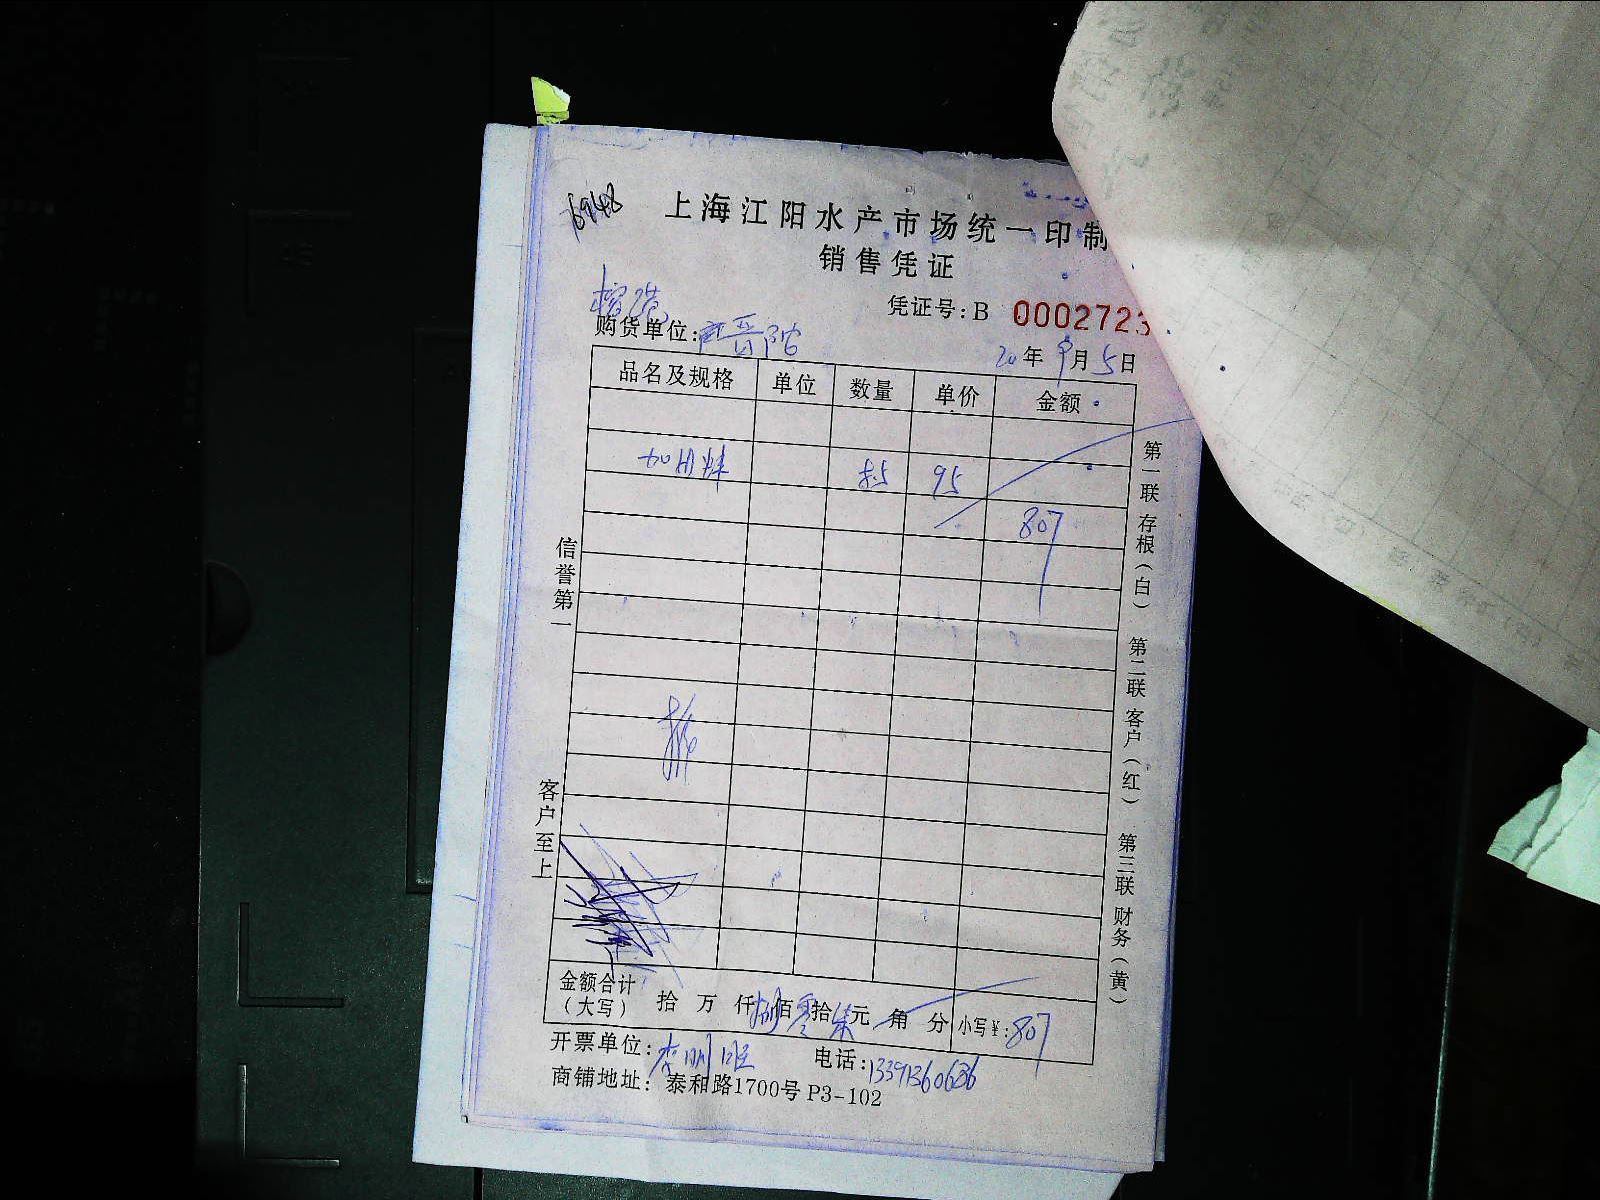 6948
上海江阳水产市场统一印制
销售凭证
凭证号:B 0002723
购货单位:
20年9月5日
品名及规格 单位 数量 单价 金额
95
807
信誉第一
客户至上
第一联 存根(白) 第二联 客户(红) 第三联 财务(黄)
金额合计(大写) 拾 万 仟 捌佰零拾柒元 角 分 小写¥:807
开票单位: 电话:13391360636
商铺地址: 泰和路1700号 P3-102